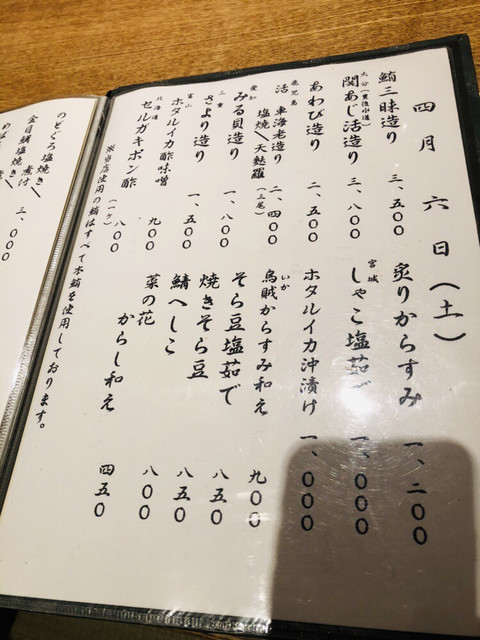 四月六日(土)
鮪三昧造り 三、五〇〇
大分(豊後水道)
関あじ活造り 三、八〇〇
あわび造り 二、五〇〇
鹿児島
活 車海老造り
塩焼 天麩羅 二、四〇〇
(三尾)
愛知
みる貝造り 一、八〇〇
三重
さより造り 一、五〇〇
富山
ホタルイカ酢味噌 九〇〇
北海道
セルガキポン酢 八〇〇
(一ケ)
炙りからすみ 一、二〇〇
宮城
しゃこ塩茹で 一、〇〇〇
ホタルイカ沖漬け 一、〇〇〇
いか
烏賊からすみ和え 九〇〇
そら豆塩茹で 八五〇
焼きそら豆 八五〇
鯖へしこ 八〇〇
菜の花
からし和え 四五〇
当店使用の鮪はすべて本鮪を使用しております。
のどぐろ塩焼き
金目鯛塩焼き
煮付 三、〇〇〇